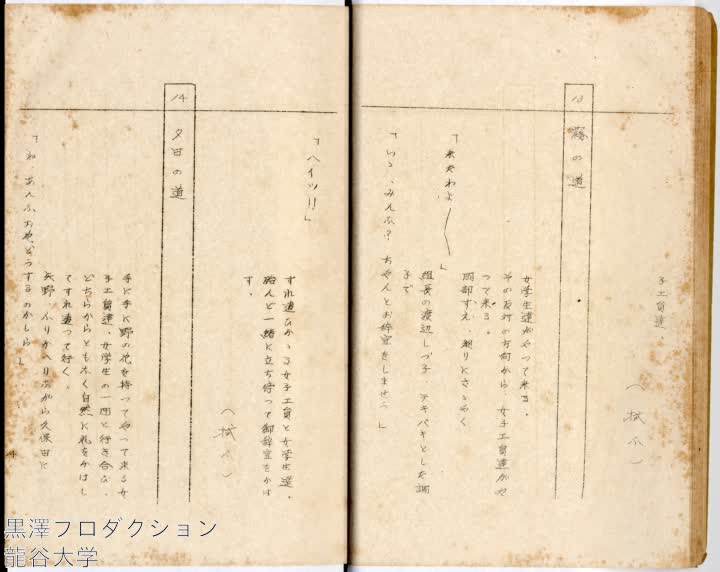 子工員達、
（拭ふ）
13
豚の道
女学生達がやって来る。
その反対の方向から、女子工員達がや
つて来る。
岡部すえ、廻りにさゝやく
「来たわよ――」
組長の渡辺しづ子、テキパキとした調
子で
「いゝ、みんな？ちやんとお辞宜をしませう」
「ハイツ!!」
すれ違ひかゝる女子工員と女学生達、
殆んど一緒に立ち停つて御辞宜をかは
す。
（拭ふ）
14
夕日の道
手に手に野の花を持つてやつて来る女
子工員達、女学生の一団と行き合ひ、
どちらからともなく自然に礼をかはし
てすれ違つて行く。
矢野、ふりかへりながら久保田に
「ね、あんな おやどうするのかしら」
黒澤プロダクション
龍谷大学